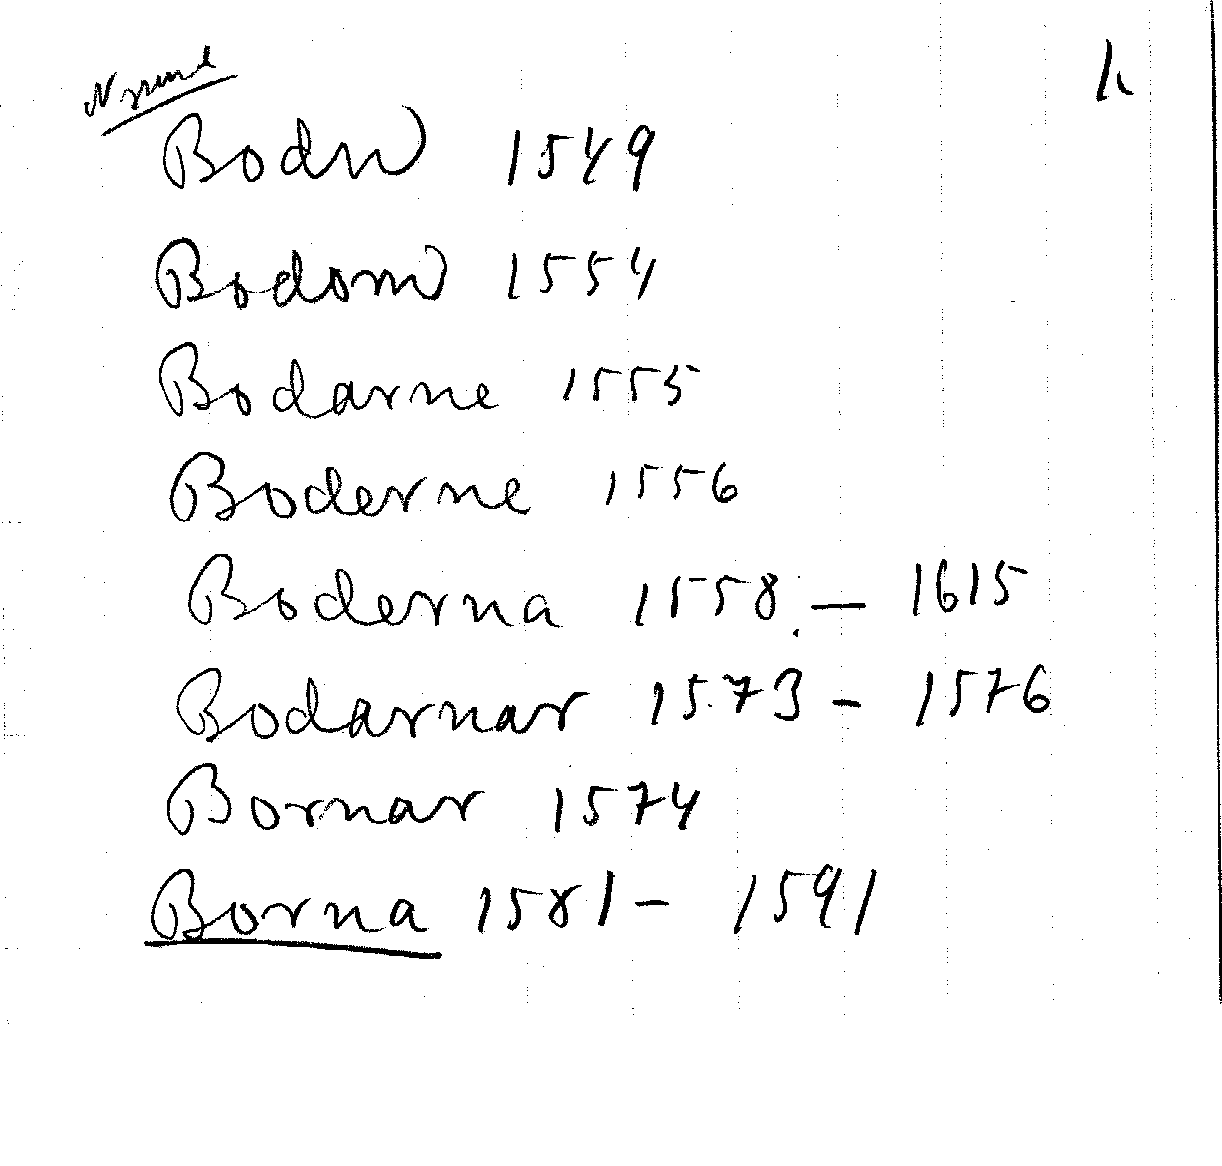 Bodn 1549
Bodom 1554
Bodarne 1555
Boderne 1556
Boderna 1558 — 1615
Bodarnar 1573 - 1576
Bornar 1574
Borna 1581 - 1591